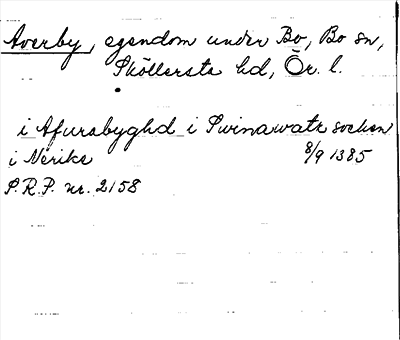 Averby, egendom under Bo, Bo sn,
Sköllersta hd, Ör. l.
i Afurabyghd i Swinawatn sochn
i Nerike 8/9 1385
S.R.P. nr. 2158